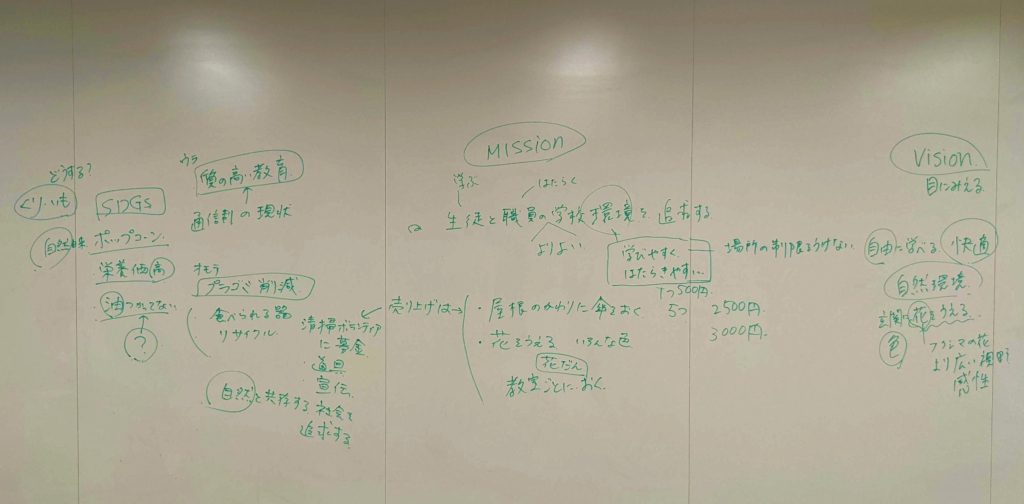 どうする?
くり・いも
SDGs
自然由来
ポップコーン
栄養価高
油つかってない
?
ウラ
質の高い教育
通信制の現状
オモテ
プラゴミ削減
食べられる器
リサイクル
清掃ボランティア
に募金
道具
宣伝
自然と共存する社会を
追求する
MISSION
学ぶ
はたらく
生徒と職員の学校環境を追求する
よりよい
学びやすく
はたらきやすい
場所の制限をうけない
売上げは→
・屋根のかわりに傘をおく
1つ500円
5つ 2500円
・花をうえる いろんな色
3000円
花だん
教室ごとにおく
Vision
目にみえる
自由に学べる 快適
自然環境
玄関に花をうえる
色
より広い視野
感性